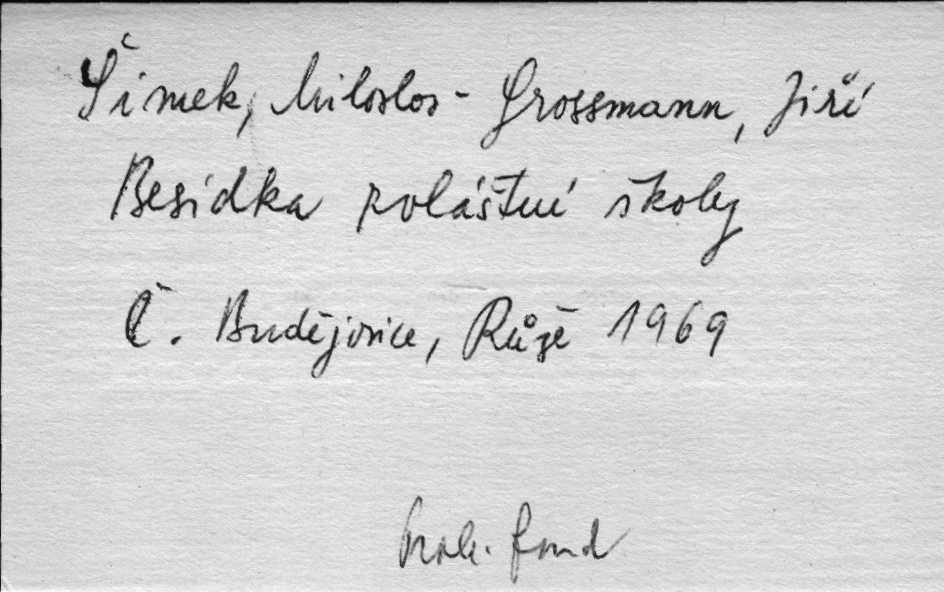 Šimek, Miloslav - Grossmann, Jiří
Besídka zvláštní školy
Č. Budějovice, Růže 1969
fond